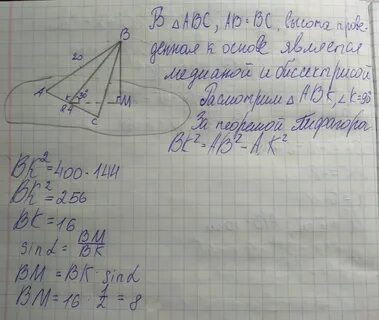 В △ABC, AB=BC, высота прове-
денная к основе является
медианой и биссектрисой
Расмотрим △ABK, ∠K=90
За теоремой Пифагора
BK²=AB²-AK²
B
20
A
K
30
M
24
C
BK²=400-144
BK²=256
BK=16
sinα=BM/BK
BM=BK·sinα
BM=16·1/2=8